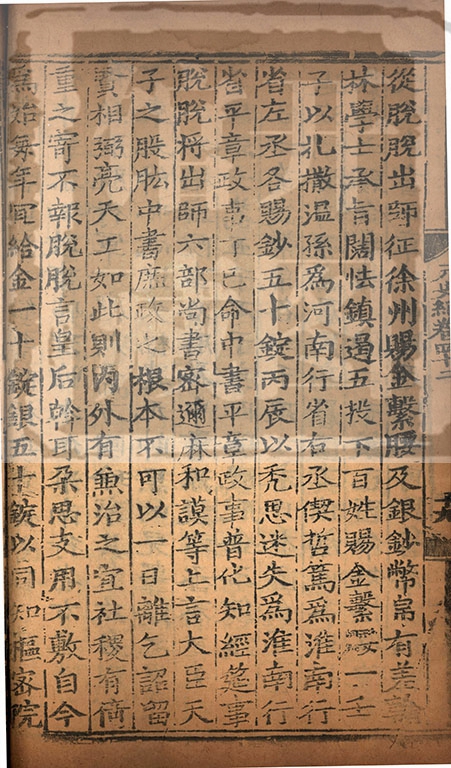 元史紀卷四十二
從脫脫出師征徐州賜金繫腰及銀鈔幣帛有差翰
林學士承旨闊怯鎮遏五投下百姓賜金繫腰一壬
子以扎撒溫孫爲河南行省右丞偰哲篤爲淮南行
省左丞各賜鈔五十錠丙辰以禿思迷失爲淮南行
省平章政事丁巳命中書平章政事普化知經筵事
脫脫將出師六部尚書密邇麻和謨等上言大臣天
子之股肱中書庶政之根本不可以一日離乞詔留
賢相弼亮天工如此則內外有兼治之宜社稷有倚
重之寄不報脫脫言皇后斡耳朶思支用不敷自今
爲始每年宜給金一十錠銀五十錠以同知樞密院